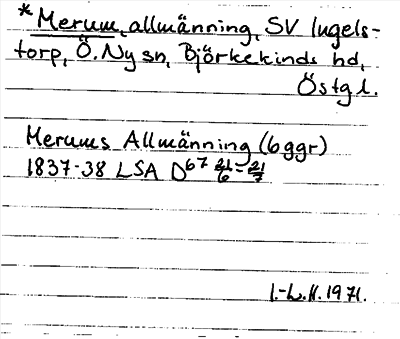 *Merum, allmänning, SV Ingels-
torp, Ö. Ny sn, Björkekinds hd,
Östgl.
Merums Allmänning (6 ggr)
1837-38 LSA D67 21/6 = 21/7
I.-L.H. 1971.